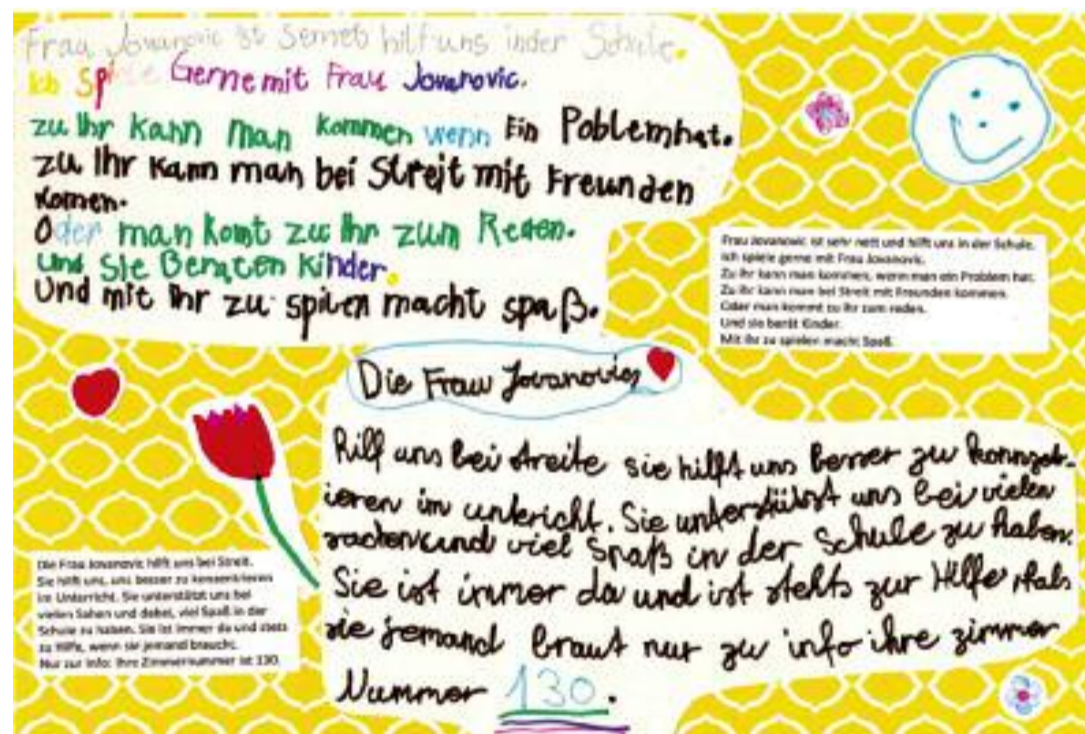 Frau Jovanovic ist Serneb hilf uns inder Schule.
Ich Spiele Gerne mit Frau Jovanovic.
zu Ihr kann man kommen wenn Ein Poblemhat.
zu Ihr kann man bei Streit mit Freunden
Komen.
Oder man komt zu Ihr zum Reden.
Und Sie Beraten Kinder.
Und mit Ihr zu spilen macht spaß.
Frau Jovanovic ist sehr nett und hilft uns in der Schule.
Ich spiele gerne mit Frau Jovanovic.
Zu ihr kann man kommen, wenn man ein Problem hat.
Zu ihr kann man bei Streit mit Freunden kommen.
Oder man kommt zu ihr zum reden.
Und sie berät Kinder.
Mit ihr zu spielen macht Spaß.
Die Frau Jovanovic
Hilf uns bei streite sie hilft uns besser zu konnzet-
ieren im untericht. Sie unterstützt uns bei vielen
sachen und viel Spaß in der Schule zu haben.
Sie ist immer da und ist stehts zur Hilfe
sie jemand braut nur zu info ihre zimmer
Nummer 130.
Die Frau Jovanovic hilft uns bei Streit.
Sie hilft uns, uns besser zu konzentrieren
im Unterricht. Sie unterstützt uns bei
vielen Sahen und dabei, viel Spaß in der
Schule zu haben. Sie ist immer da und stets
zu Hilfe, wenn sie jemand braucht.
Nur zur Info: Ihre Zimmernummer ist 130.